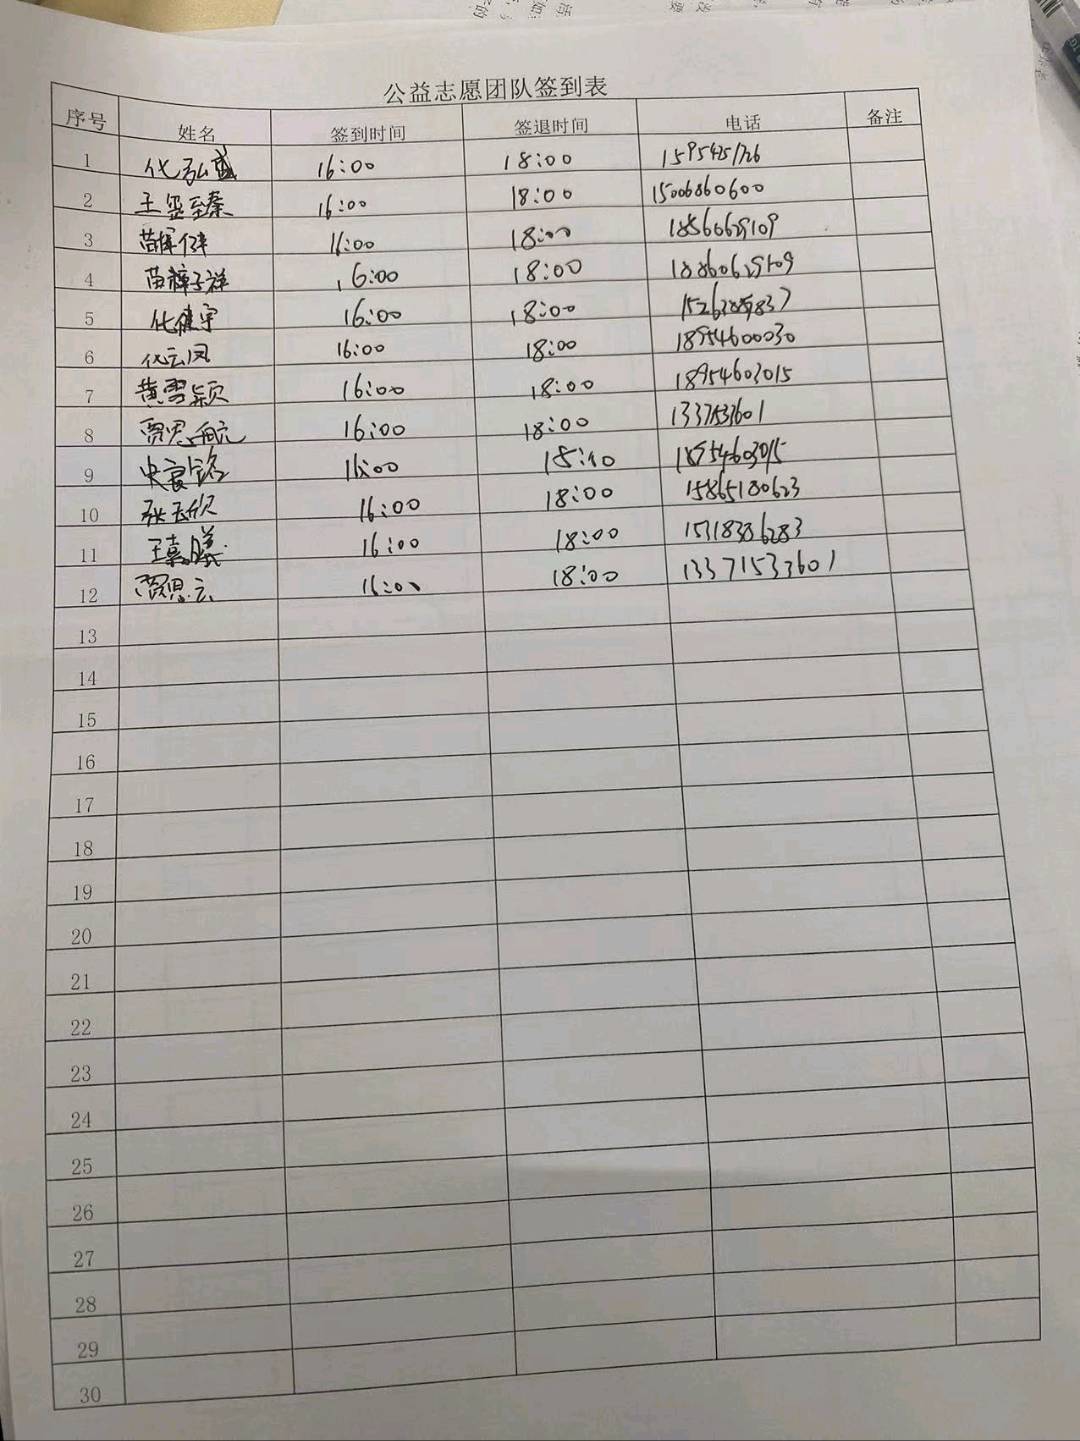 公益志愿团队签到表
序号 姓名 签到时间 签退时间 电话 备注
1 化弘盛 16:00 18:00
2 王玺臻 16:00 18:00 15006860600
3 16:00 18:00
4 苗梓祥 16:00 18:00
5 化健宇 16:00 18:00
6 化云凤 16:00 18:00 18954600030
7 黄雪颖 16:00 18:00 18954603015
8 贾思航 16:00 18:00
9 16:00 18954603015
10 张玉欣 16:00 18:00 15865180623
11 王嘉曦 16:00 18:00 15718386283
12 贾思云 16:00 18:00 13371533601
13
14
15
16
17
18
19
20
21
22
23
24
25
26
27
28
29
30